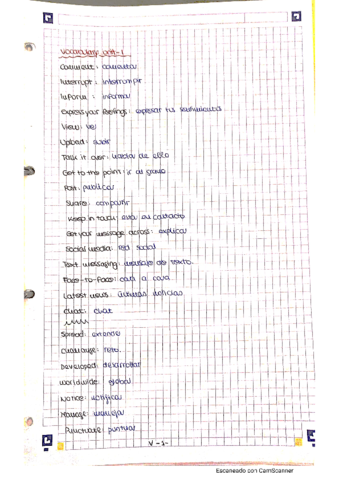 Vocabulary unit-1
Comment: comentar
Interrupt: interrumpir
Inform: informar
Express your feelings: expresar tus sentimientos
View: ver
Upload: subir
Talk it over: hablar de ello
Get to the point: ir al grano
Post: publicar
Share: compartir
Keep in touch: estar en contacto
Get your message across: explicar
Social media: red social
Text messaging: mensaje de texto.
Face-to-face: cara a cara
Latest news: últimas noticias
Chat: chat
Spread: extender
Challenge: reto.
Developed: desarrollar
Worldwide: global
Notice: notificar
Manage: manejar
Punctual: puntual
V-1-
Escaneado con CamScanner